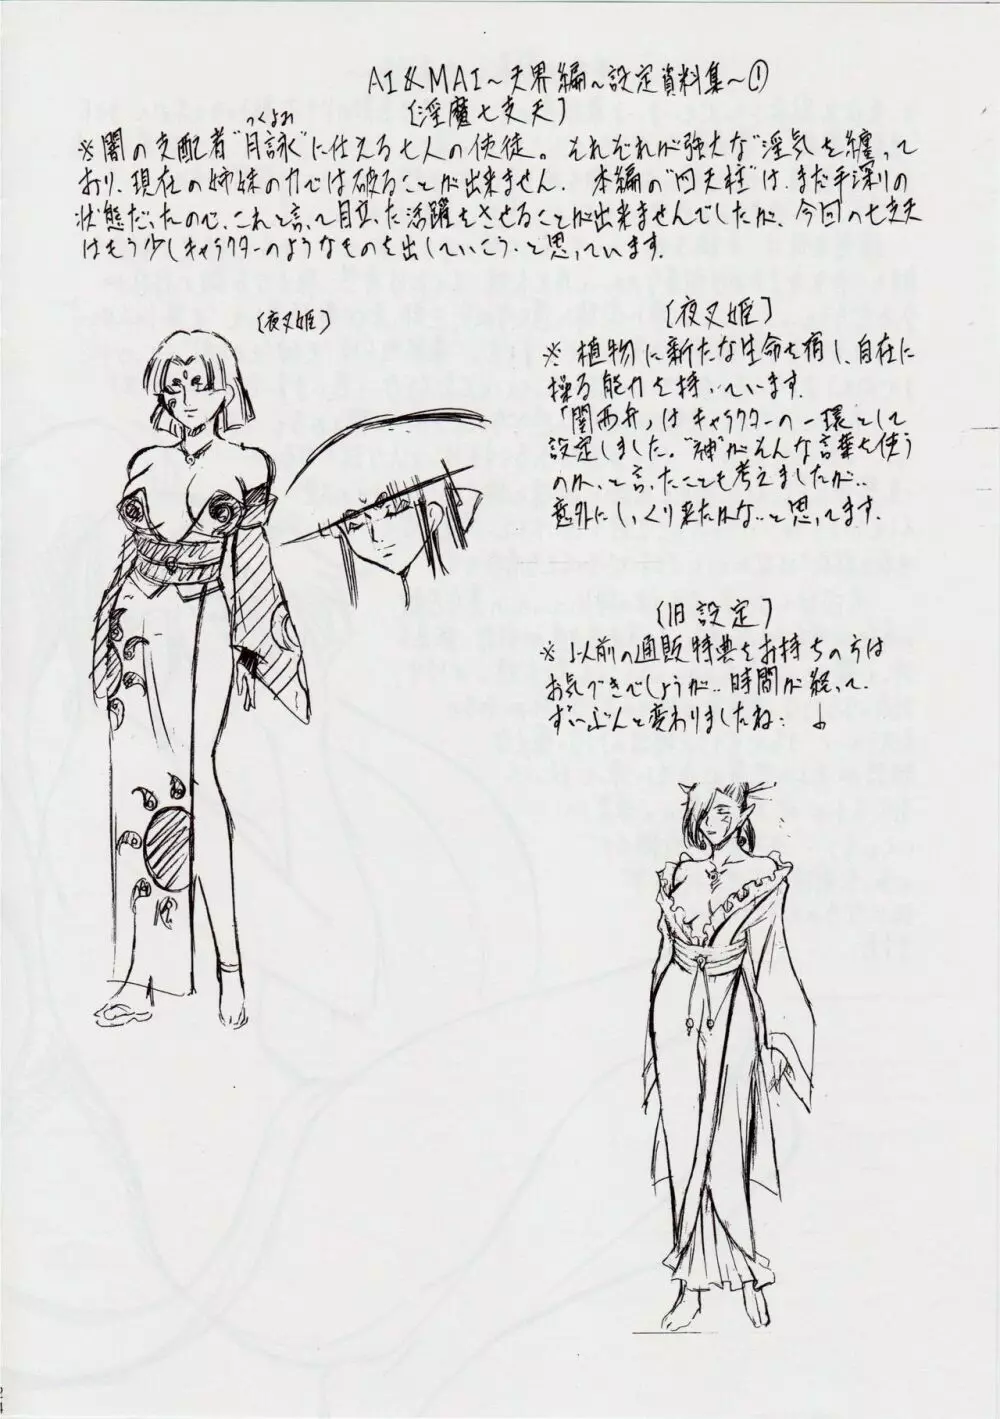 AI&MAI～天界編～設定資料集～①
〔淫魔七支天〕
つくよみ
※闇の支配者“月詠”に仕える七人の使徒。それぞれが強大な“淫気”を纏って
おり、現在の姉妹の力では破ることが出来ません。本編の“四天柱”は、まだ手探りの
状態だったので、これと言って目立った活躍をさせることが出来ませんでしたが、今回の七支天
はもう少しキャラクターのようなものを出していこう、と思っています。
〔夜叉姫〕
〔夜叉姫〕
※植物に新たな生命を宿し、自在に
操る能力を持っています。
「関西弁」はキャラクターの一環として
設定しました。“神”がそんな言葉を使う
のか、と言ったことも考えましたが‥
意外にしっくり来たかな‥と思ってます。
〔旧設定〕
※以前の通販特典をお持ちの方は
お気づきでしょうが‥時間が経って、
ずいぶんと変わりましたね‥
24